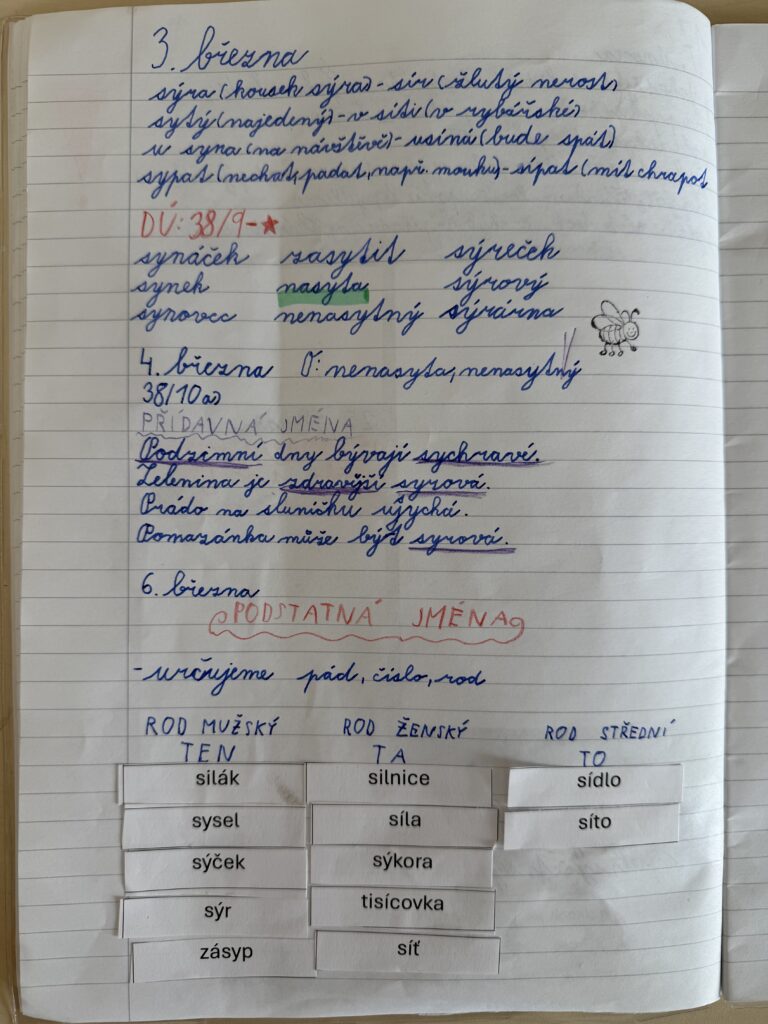 3. března
sýra (kousek sýra) - sír (žlutý nerost)
sytý (najedený) - v síti (v rybářské)
u syna (na návštěvě) - usíná (bude spát)
sypat (nechat, padat, např. mouku) - sípat (mít chrapot
DÚ: 38/9 - ★
synáček zasytit sýreček
synek nasyta sýrový
synovec nenasytný sýrárna
4. března O: nenasyta, nenasytný
38/10 a)
PŘÍDAVNÁ JMÉNA
Podzimní dny bývají sychravé.
Zelenina je zdravější syrová.
Prádo na sluníčku usychá.
Pomazánka může být syrová.
6. března
PODSTATNÁ JMÉNA
- určujeme pád, číslo, rod
ROD MUŽSKÝ ROD ŽENSKÝ ROD STŘEDNÍ
TEN TA TO
silák silnice sídlo
sysel síla síto
sýček sýkora
sýr tisícovka
zásyp síť